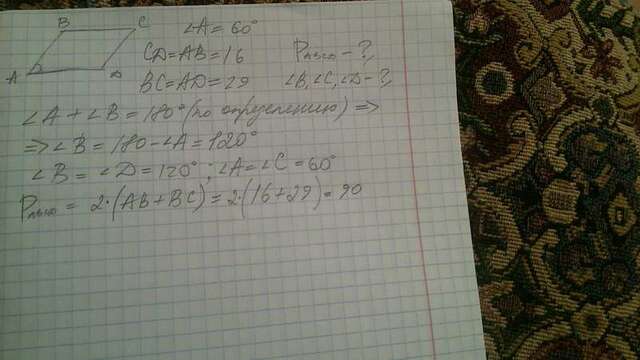 A B C D
∠A = 60°
CD = AB = 16 Pавсд - ?,
BC = AD = 29 ∠B, ∠C, ∠D - ?,
∠A + ∠B = 180° (по определению) =>
=> ∠B = 180 - ∠A = 120°
∠B = ∠D = 120°; ∠A = ∠C = 60°
Pавсд = 2·(AB + BC) = 2·(16 + 29) = 90